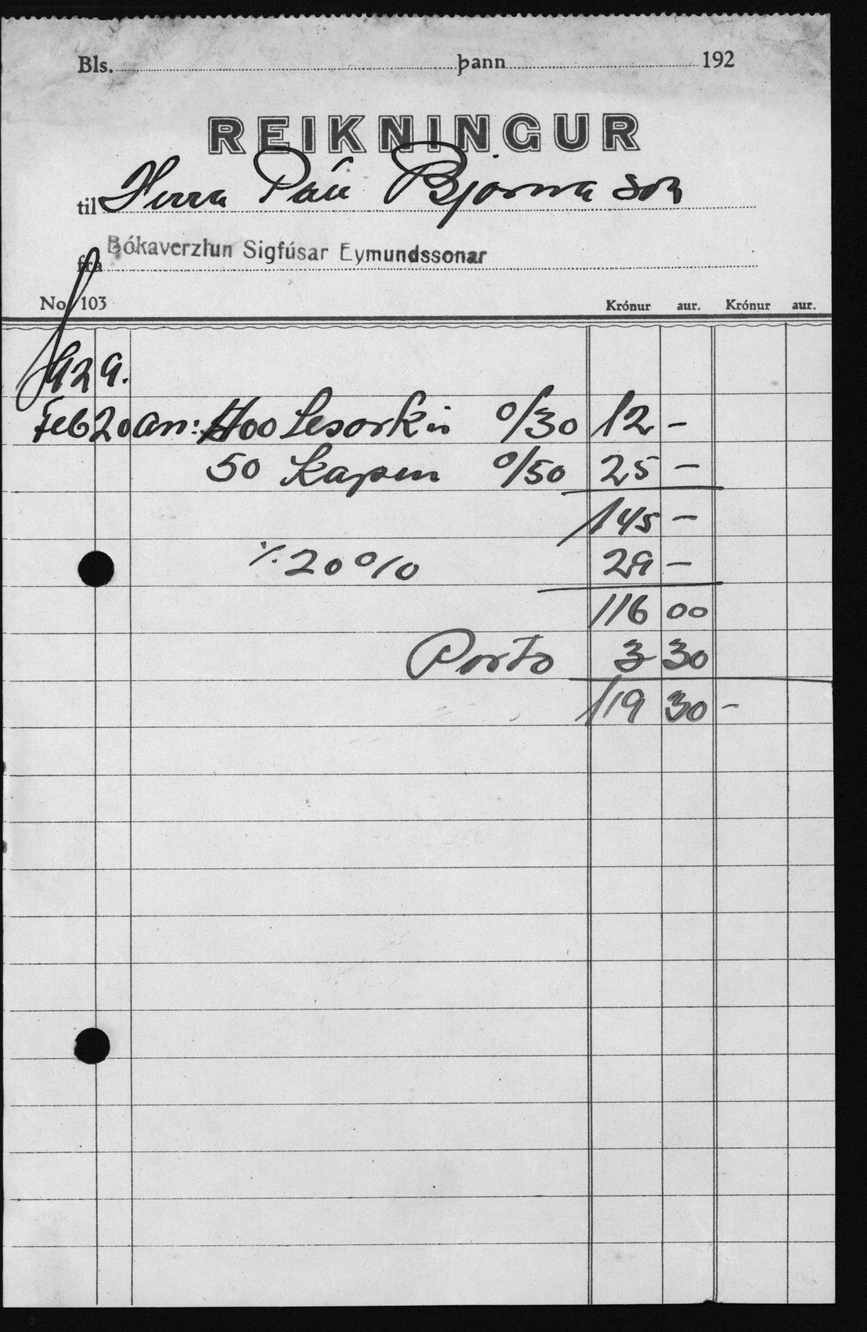 Bls. þann 192
REIKNINGUR
til Herra Páll Bjarnason
frá Bókaverzlun Sigfúsar Eymundssonar
No 103 Krónur aur. Krónur aur.
1929.
Feb 20 an: 400 Lesarkir 0/30 12 -
50 Kápur 0/50 25 -
145 -
÷ 20 % 29 -
116 00
Porto 3 30
119 30 -